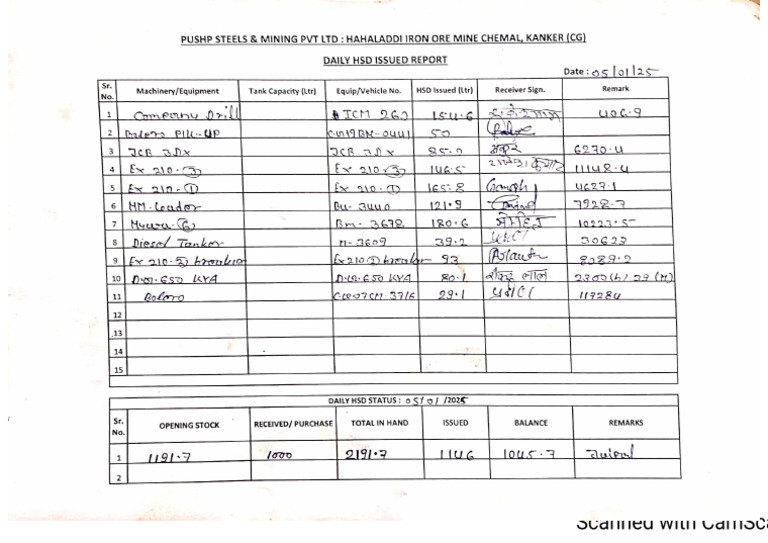 PUSHP STEELS & MINING PVT LTD : HAHALADDI IRON ORE MINE CHEMAL, KANKER (CG)
DAILY HSD ISSUED REPORT
Date : 05/01/25
Sr. No. Machinery/Equipment Tank Capacity (Ltr) Equip/Vehicle No. HSD Issued (Ltr) Receiver Sign. Remark
1 Company Drill ICM 260 154.6 406.9
2 Bolero PIK-UP CG19BN-0441 50
3 JCB 3Dx JCB 3Dx 85.0 6270.4
4 Ex 210-③ Ex 210-③ 146.5 11148.4
5 Ex 210-① Ex 210-① 165.8 4627.1
6 HM-Loader 3440 121.9 7928.7
7 3678 180.6 10223.5
8 Diesel Tanker 3609 39.2 30623
9 Ex 210-② breaker Ex210② breaker 93 8089.2
10 D.G.650 KVA D.G.650 KVA 80.1 2300(h) 29(M)
11 Bolero CG07CM-3716 29.1 117284
12
13
14
15
DAILY HSD STATUS : 05/01/2025
Sr. No. OPENING STOCK RECEIVED/ PURCHASE TOTAL IN HAND ISSUED BALANCE REMARKS
1 1191.7 1000 2191.7 1146 1045.7
2
Scanned with CamSc